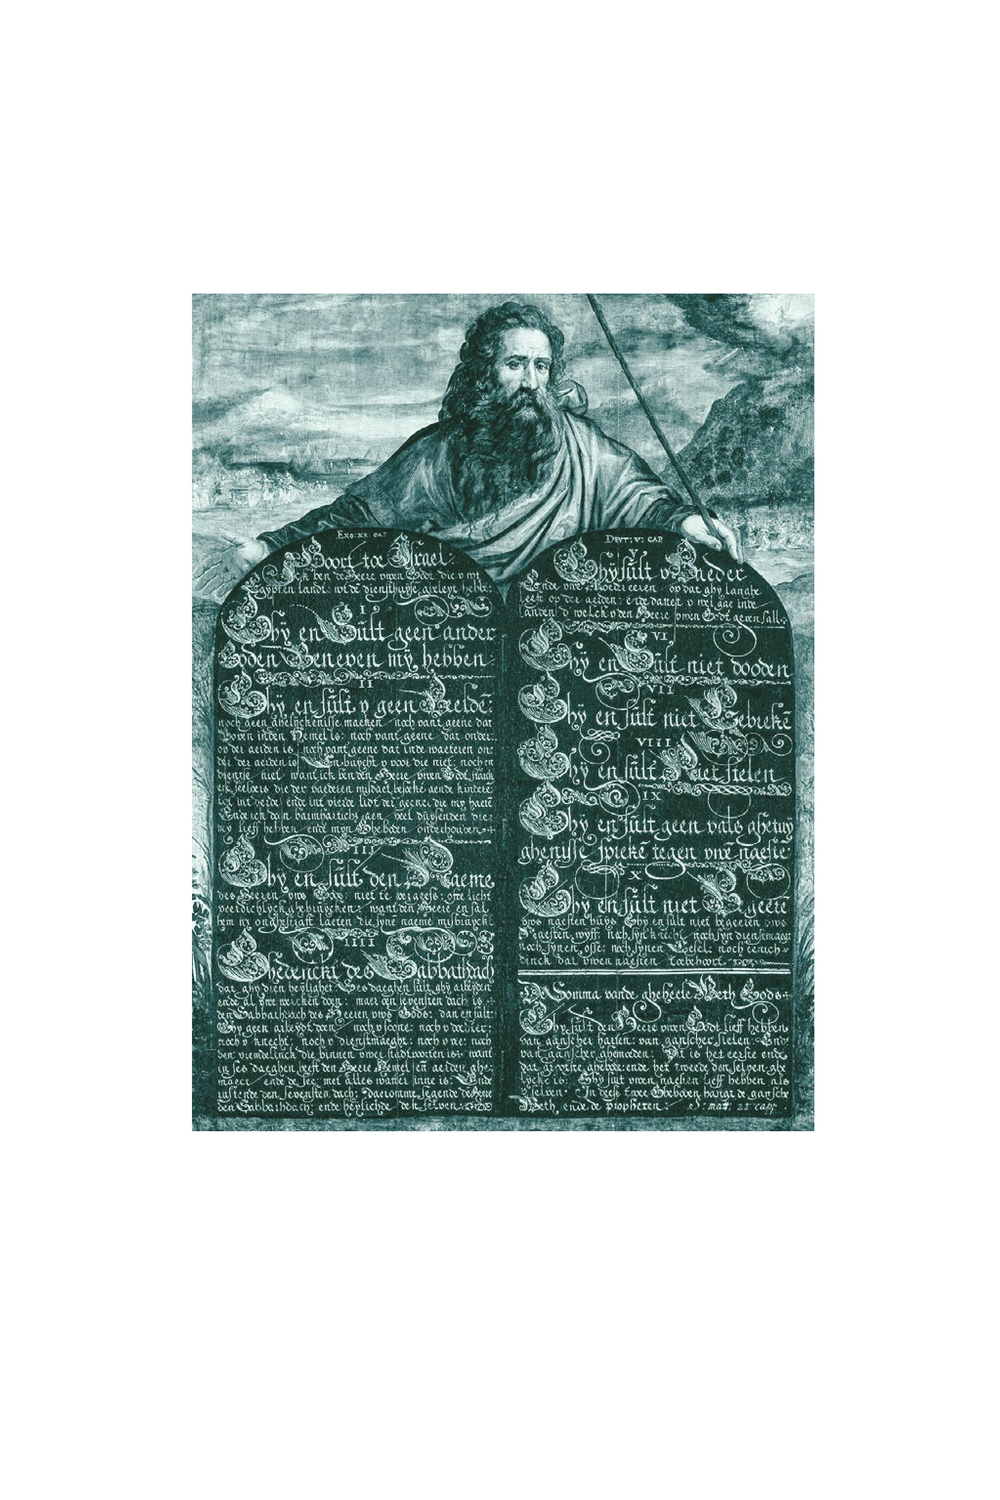 Exo: xx: cap
Hoort toe Israel
Ick ben de Heere uwen Godt die u wt
Egypten landt: wt dē diensthuyse geleyt hebbe:
I
Ghÿ en Sult geen ander
Goden Beneven mÿ, hebben
II
Ghÿ en sult v geen Beeldē
noch geen ghelÿckenisse maeken noch vant geene dat
boven inden Hemel is: noch vant geene dat onder
op der aerden is noch vant geene dat inde waeteren on:
der der aerden is En buycht v voor die niet: noch en
dientse niet want ick ben den Heere uwen Godt
die der vaederen misdaet besoecke aende kinderē
tot int derde ende int vierde lidt der geene die my haetē
Ende ick doe barmharticheyt aen veel duysenden die
my lieff hebben ende myn Ghebooden onderhouden
III
Ghy en sult den Naeme
des Heeren uws Gods niet te vergeefs: ofte licht
veerdichlyck ghebruycken: want den Heere en sal
hem niet ongestraft laeten die syne naeme misbruyckt
IIII
Ghedenckt des Sabbathdach
dat ghy dien heylighet Ses daeghen sult ghy arbeyden
ende al uwe wercken doen: maer den sevensten dach is
den Sabbathdach des Heeren uws Gods: dan en sult
Ghy geen arbeydt doen noch v soone: noch v dochter:
noch v knecht: noch v dienstmaeght noch v vee: noch
den vremdelinck die binnen uwer stadtpoorten is: want
in ses daeghen heeft den Heere Hemel en aerden ghe
maect ende de see: met alles watter inne is: Ende
ruste den den sevensten dach: daeromme segende de Heere
den Sabbathdach: ende heylichde den selven
Devt: v: cap
V
Ghÿ sult v Vaeder
Ende uwe Moeder eeren op dat ghy langhe
leeft op der aerden: ende dattet v wel gae inde
landen d welck v den Heere uwen Godt geven sall:
VI
Ghy en Sult niet dooden
VII
Ghÿ en sult niet Echtbrekē
VIII
Ghy en sult Niet stelen
IX
Ghy en sult geen vals ghetuy
ghenisse sprekē tegen uwē naestē
X
Ghy en sult niet Begeerē
uws naesten huys Ghy en sult niet begeeren uws
Naesten wyff: noch syn knecht noch syn dienstmaegt
noch synen osse: noch synen Esel: noch eenich
dinck dat uwen naesten toebehoort
De Somma vande gheheele Weth Gods
Ghy sult den Heere uwen Godt lieff hebben
van ganscher harten: van ganscher sielen: Ende
van ganscher ghemoeden Dit is het eerste ende
dat grootste ghebodt: ende het tweede den selven ghe
lycke is: Ghy sult uwen naesten lieff hebben als
v selven In deese twee Gheboden hangt de gansche
Weth, ende de propheten: S: mat: 22 cap